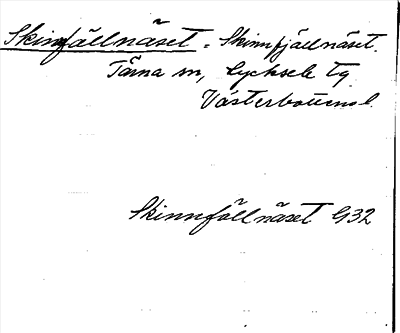 Skinnfällnäset = Skinnfjällnäset.
Tärna sn, Lycksele tg
Västerbottens l.
Skinnfällnäset G32